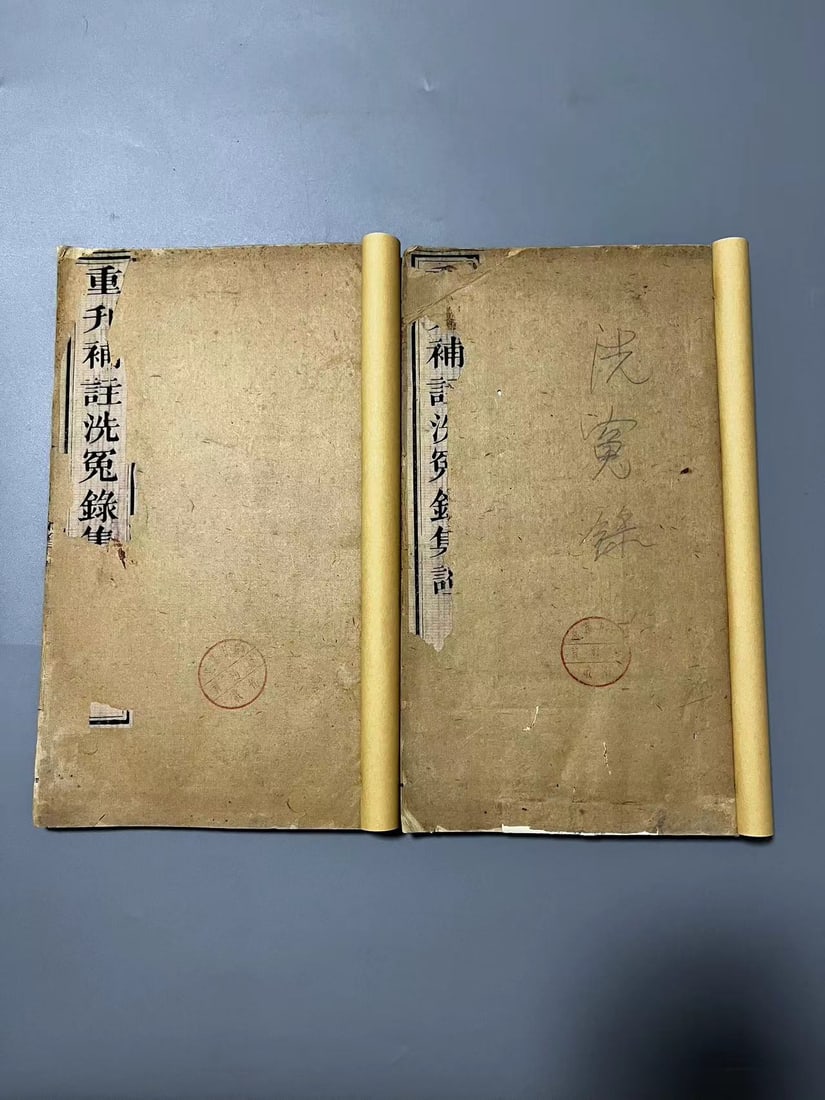 重刊補註洗冤錄集
補註洗冤錄集證
洗寃錄